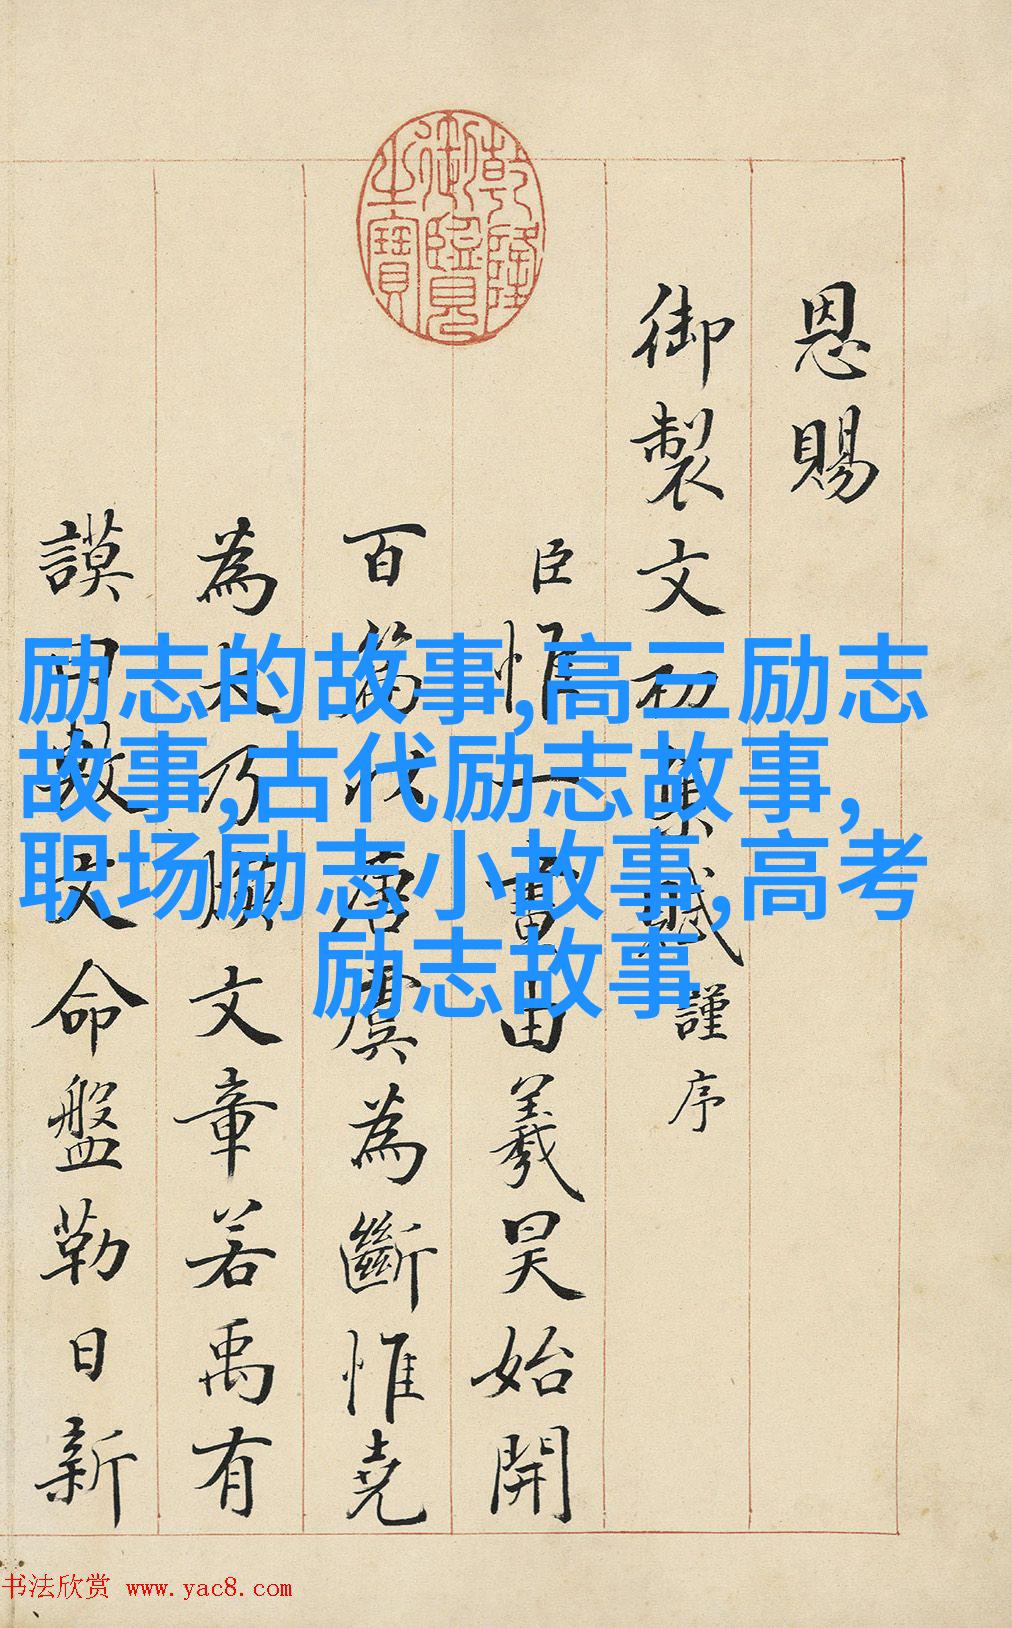 乾隆
御覽
之寶
恩賜
御製文初集賦謹序
臣惟一畫由羲昊始開
百篇唐虞為斷惟堯
為大乃煥文章若禹有
謨用敷文命盤勒日新
励志的故事,高三励志
故事,古代励志故事,
职场励志小故事,高考
励志故事
书法欣赏 www.yac8.com